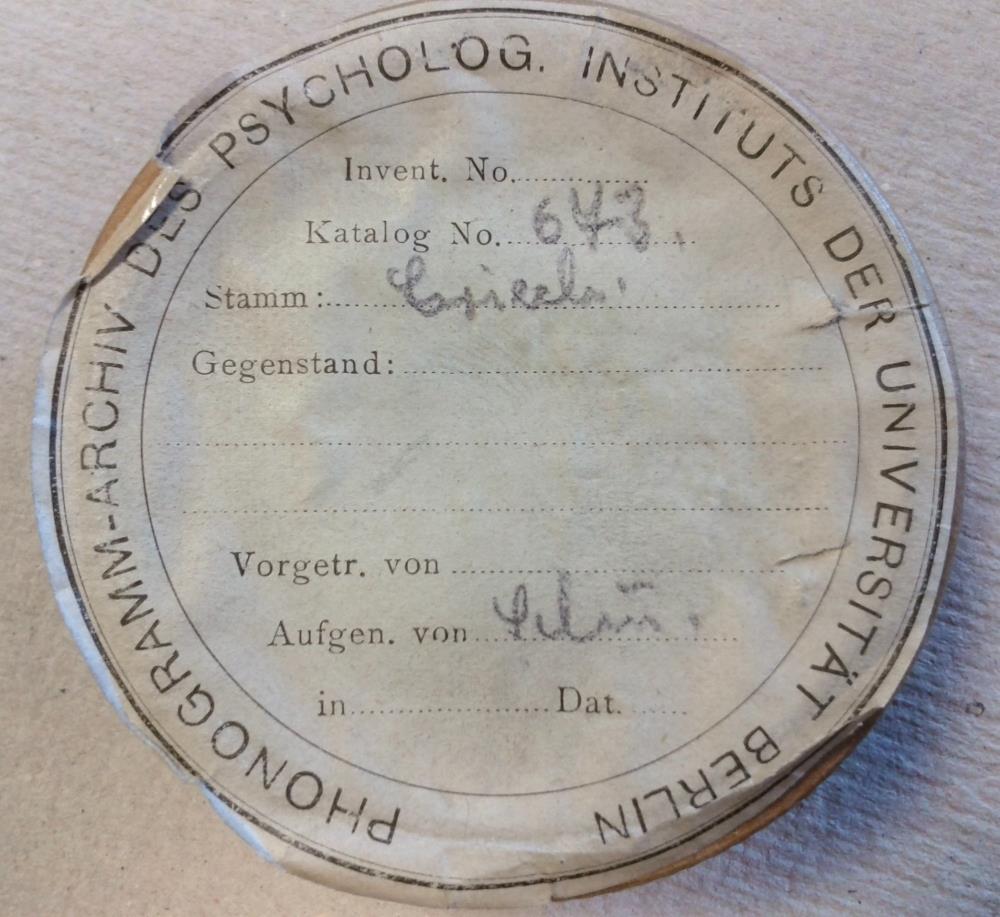 PHONOGRAMM-ARCHIV DES PSYCHOLOG. INSTITUTS DER UNIVERSITÄT BERLIN
Invent. No.
Katalog No. 643.
Stamm:
Gegenstand:
Vorgetr. von
Aufgen. von
in Dat.